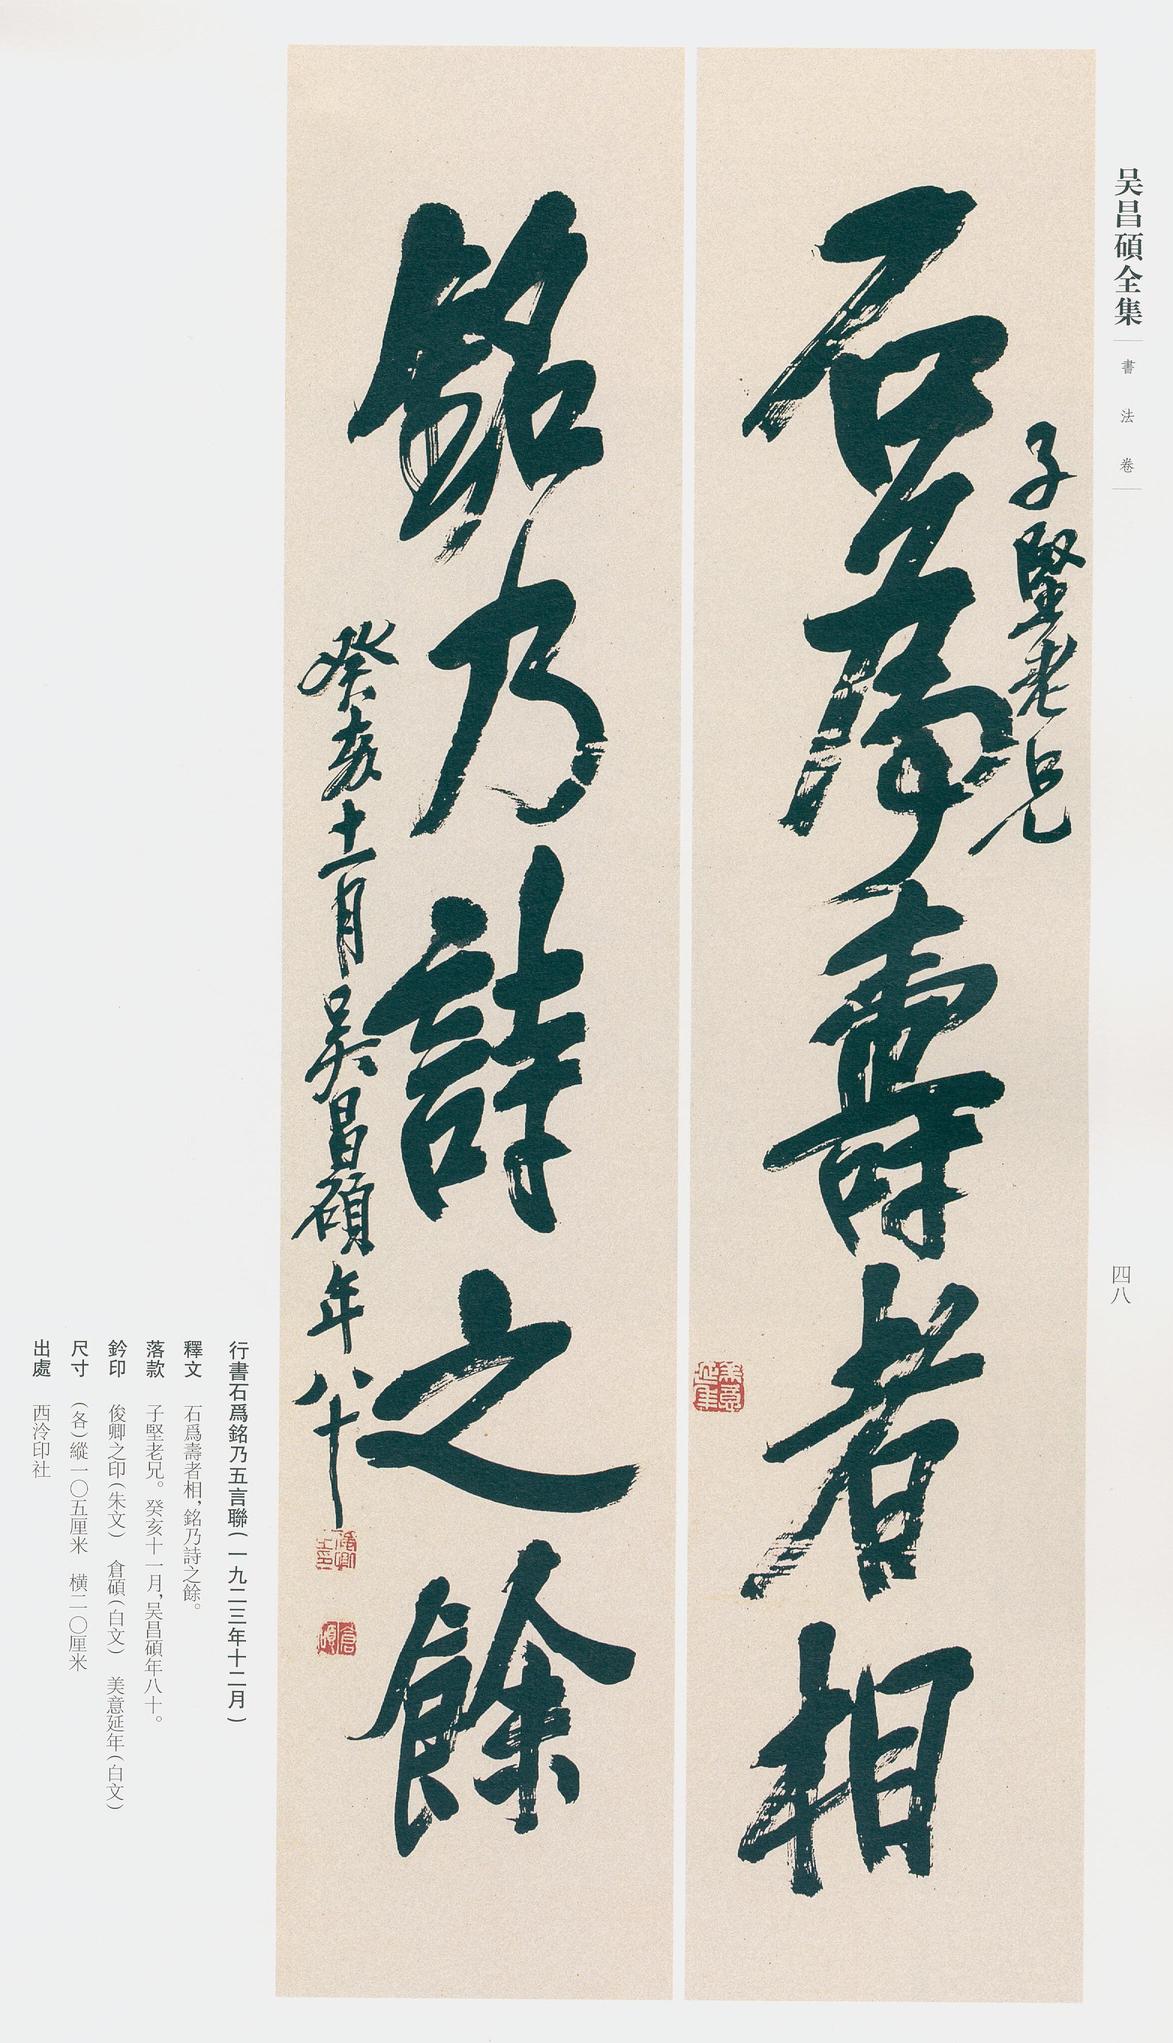 吴昌碩全集
書法卷
四八
子堅老兄
石爲壽者相
美意延年
銘乃詩之餘
癸亥十一月吴昌碩年八十
俊卿之印
倉碩
行書石爲銘乃五言聯（一九二三年十二月）
釋文　石爲壽者相，銘乃詩之餘。
落款　子堅老兄。癸亥十一月，吴昌碩年八十。
鈐印　俊卿之印（朱文）　倉碩（白文）　美意延年（白文）
尺寸　（各）縱一〇五厘米　橫二〇厘米
出處　西泠印社